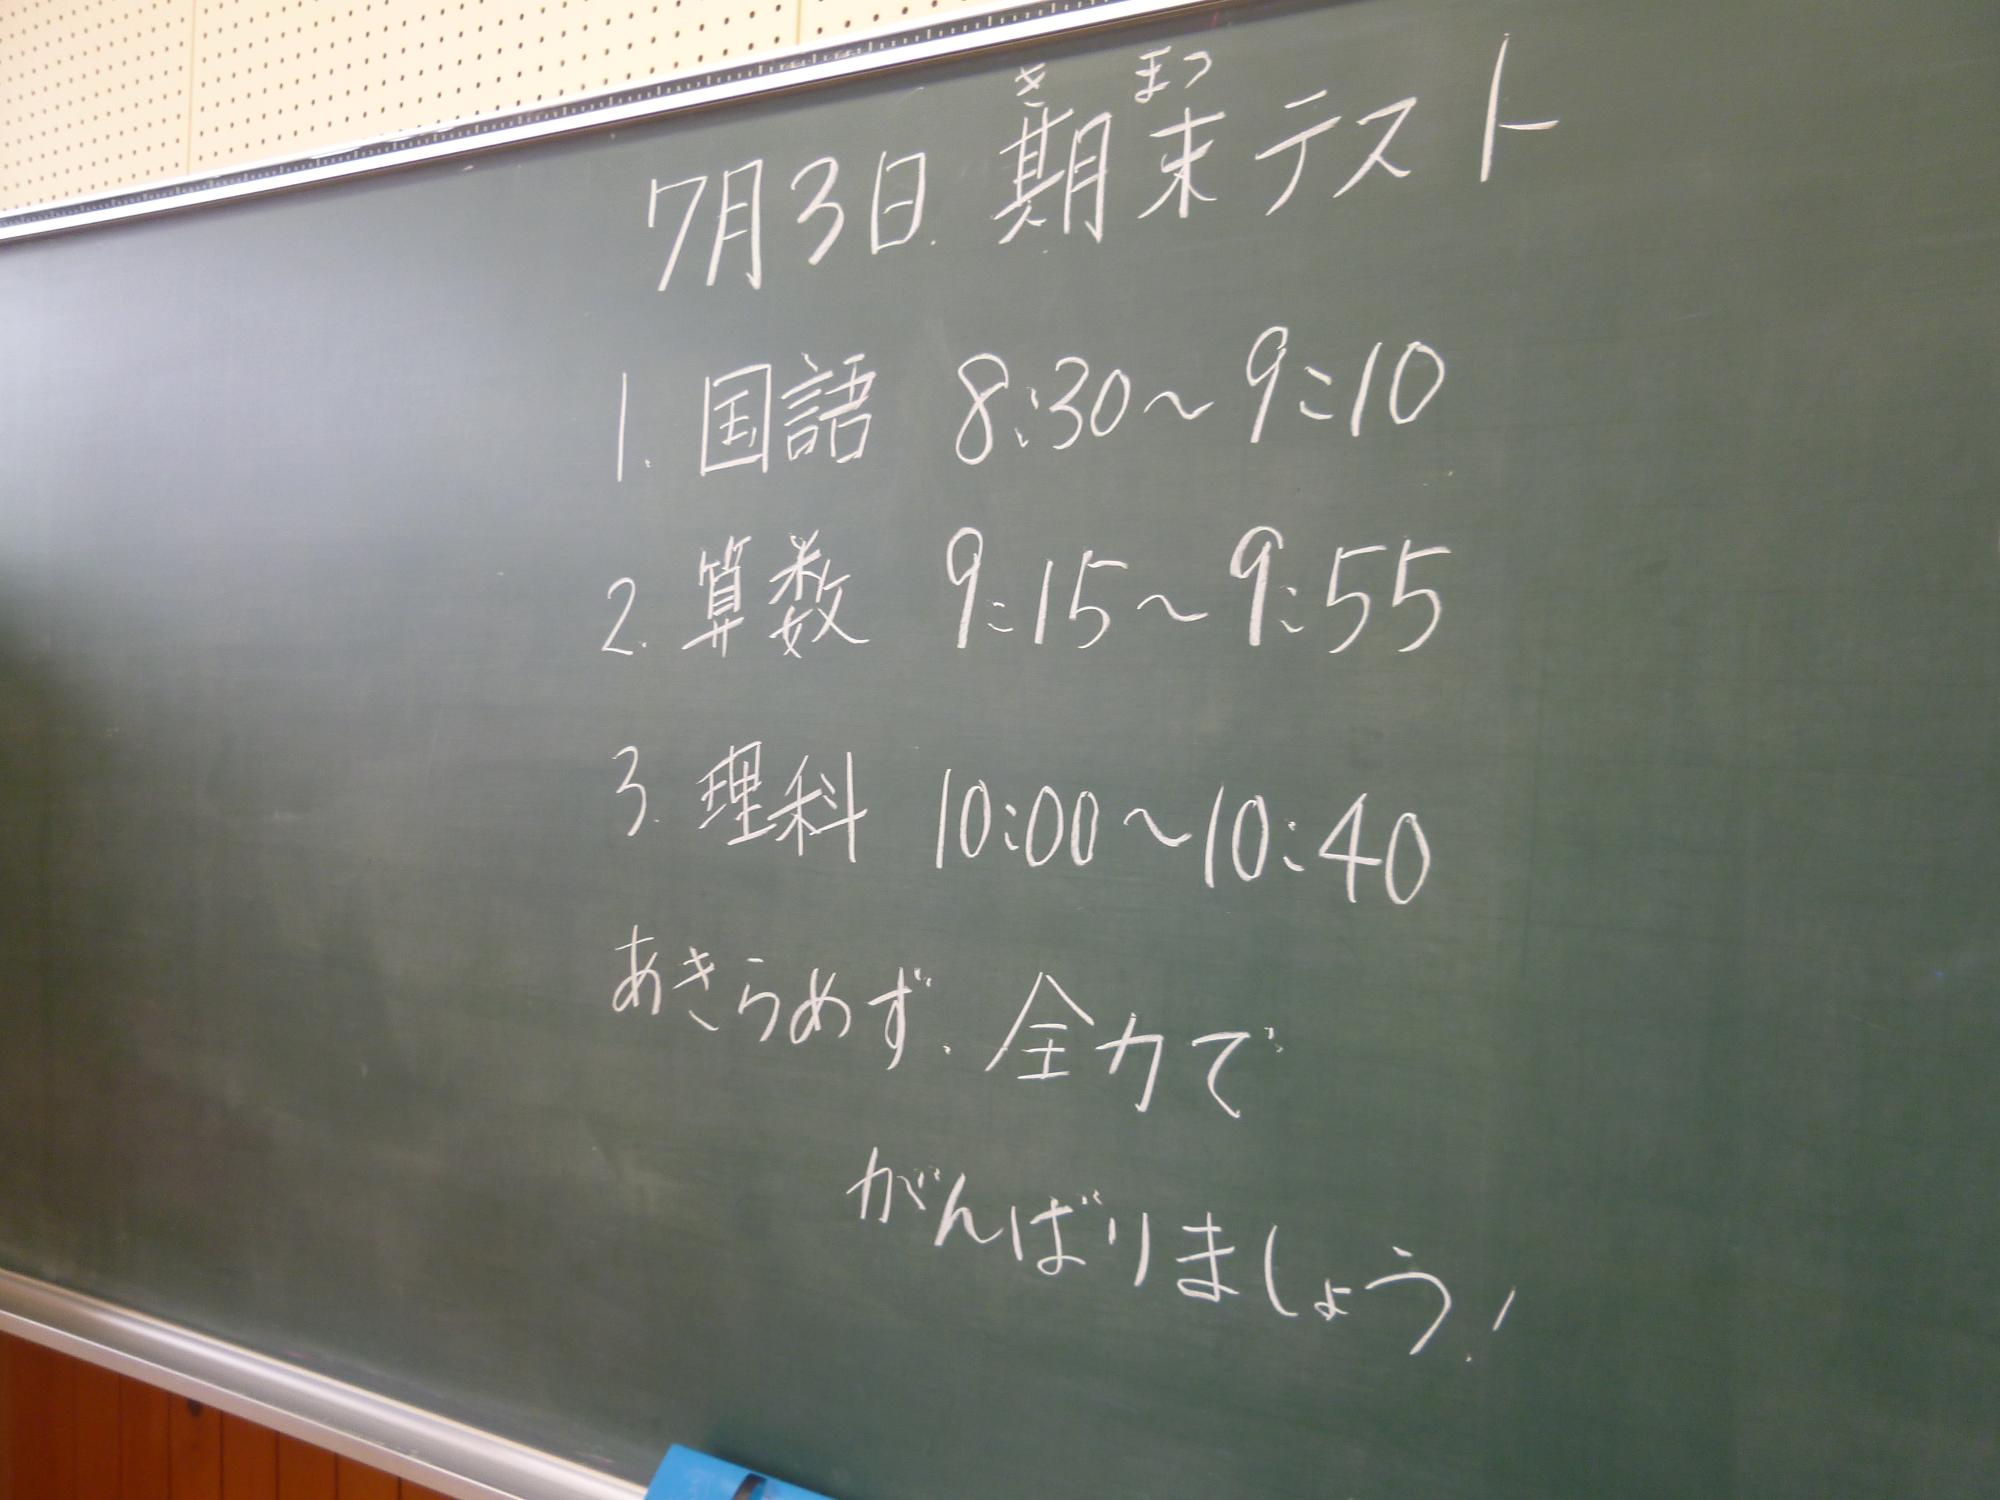 きまつ
7月3日 期末テスト
1. 国語 8:30〜9:10
2. 算数 9:15〜9:55
3. 理科 10:00〜10:40
あきらめず、全力で
がんばりましょう!